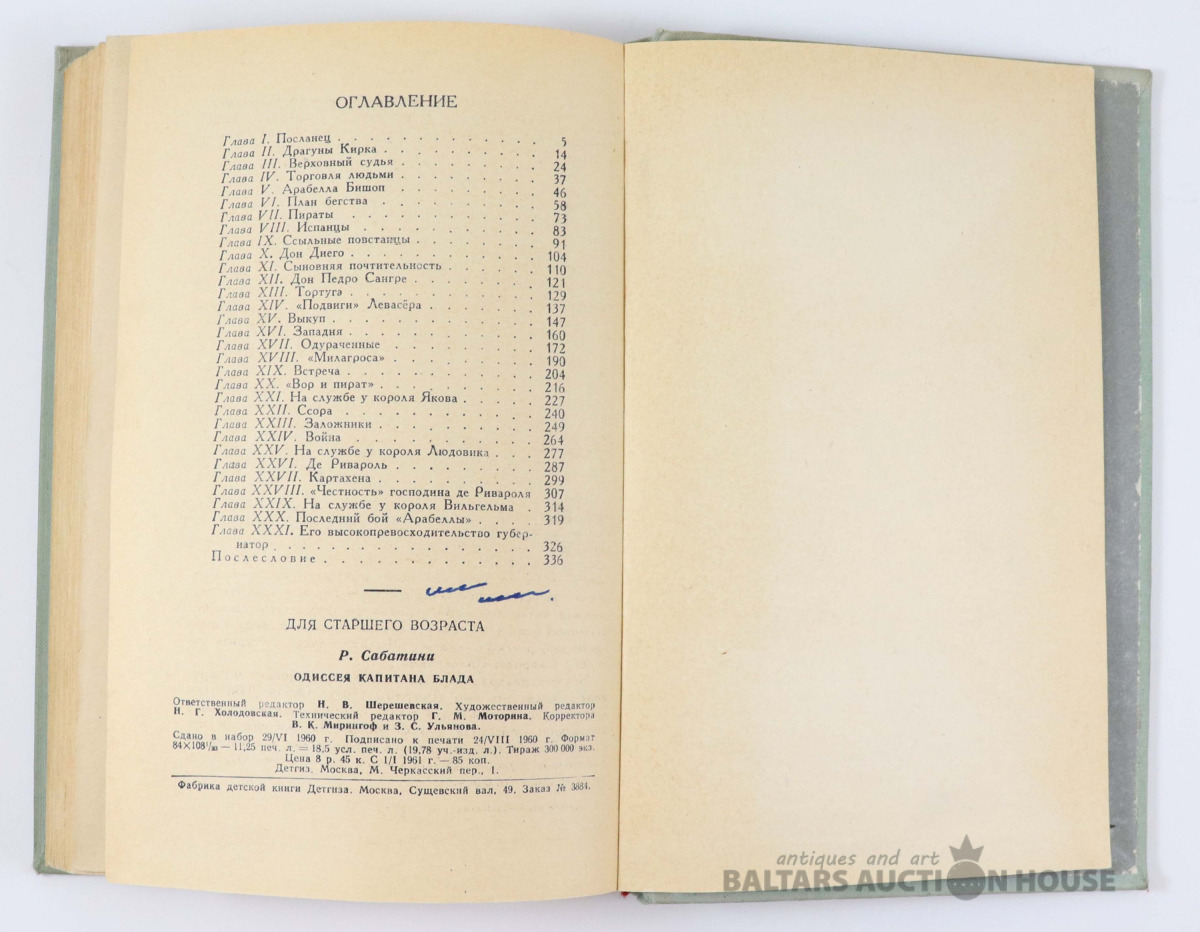 ОГЛАВЛЕНИЕ
Глава I. Посланец . . . . . . . . . . . 5
Глава II. Драгуны Кирка . . . . . . . . . 14
Глава III. Верховный судья . . . . . . . . 24
Глава IV. Торговля людьми . . . . . . . . 37
Глава V. Арабелла Бишоп . . . . . . . . 46
Глава VI. План бегства . . . . . . . . . 58
Глава VII. Пираты . . . . . . . . . . 73
Глава VIII. Испанцы . . . . . . . . . . 83
Глава IX. Ссыльные повстанцы . . . . . . . 91
Глава X. Дон Диего . . . . . . . . . . 104
Глава XI. Сыновняя почтительность . . . . . . 110
Глава XII. Дон Педро Сангре . . . . . . . 121
Глава XIII. Тортуга . . . . . . . . . . 129
Глава XIV. «Подвиги» Левасёра . . . . . . . 137
Глава XV. Выкуп . . . . . . . . . . . 147
Глава XVI. Западня . . . . . . . . . . 160
Глава XVII. Одураченные . . . . . . . . 172
Глава XVIII. «Милагроса» . . . . . . . . 190
Глава XIX. Встреча . . . . . . . . . . 204
Глава XX. «Вор и пират» . . . . . . . . . 216
Глава XXI. На службе у короля Якова . . . . . 227
Глава XXII. Ссора . . . . . . . . . . 240
Глава XXIII. Заложники . . . . . . . . . 249
Глава XXIV. Война . . . . . . . . . . 264
Глава XXV. На службе у короля Людовика . . . 277
Глава XXVI. Де Ривароль . . . . . . . . 287
Глава XXVII. Картахена . . . . . . . . . 299
Глава XXVIII. «Честность» господина де Ривароля 307
Глава XXIX. На службе у короля Вильгельма . 314
Глава XXX. Последний бой «Арабеллы» . . . . 319
Глава XXXI. Его высокопревосходительство губер-
натор . . . . . . . . . . . . . 326
Послесловие . . . . . . . . . . . . 336
ДЛЯ СТАРШЕГО ВОЗРАСТА
Р. Сабатини
ОДИССЕЯ КАПИТАНА БЛАДА
Ответственный редактор Н. В. Шерешевская. Художественный редактор
Н. Г. Холодовская. Технический редактор Г. М. Моторина. Корректора
В. К. Мирингоф и З. С. Ульянова.
Сдано в набор 29/VI 1960 г. Подписано к печати 24/VIII 1960 г. Формат
84×108¹/₃₂ — 11,25 печ. л. = 18,5 усл. печ. л. (19,78 уч.-изд. л.). Тираж 300 000 экз.
Цена 8 р. 45 к. С 1/I 1961 г. — 85 коп.
Детгиз, Москва, М. Черкасский пер., 1.
Фабрика детской книги Детгиза. Москва, Сущевский вал, 49. Заказ № 3884.
antiques and art
BALTARS AUCTION HOUSE